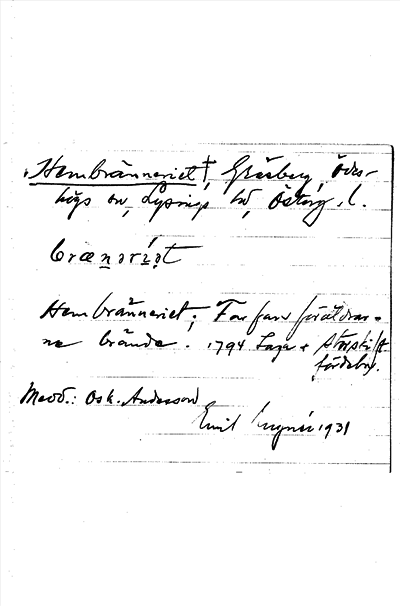 Hembränneriet †, Gråberg, Ödes-
högs sn, Lysings hd, Österg. l.
brænərı́ət
Hembränneriet; Farfars föräldrar-
na brände. 1794 Laga + Storskift
fördebr.
Medd.: Osk. Andersson
Emil 1931